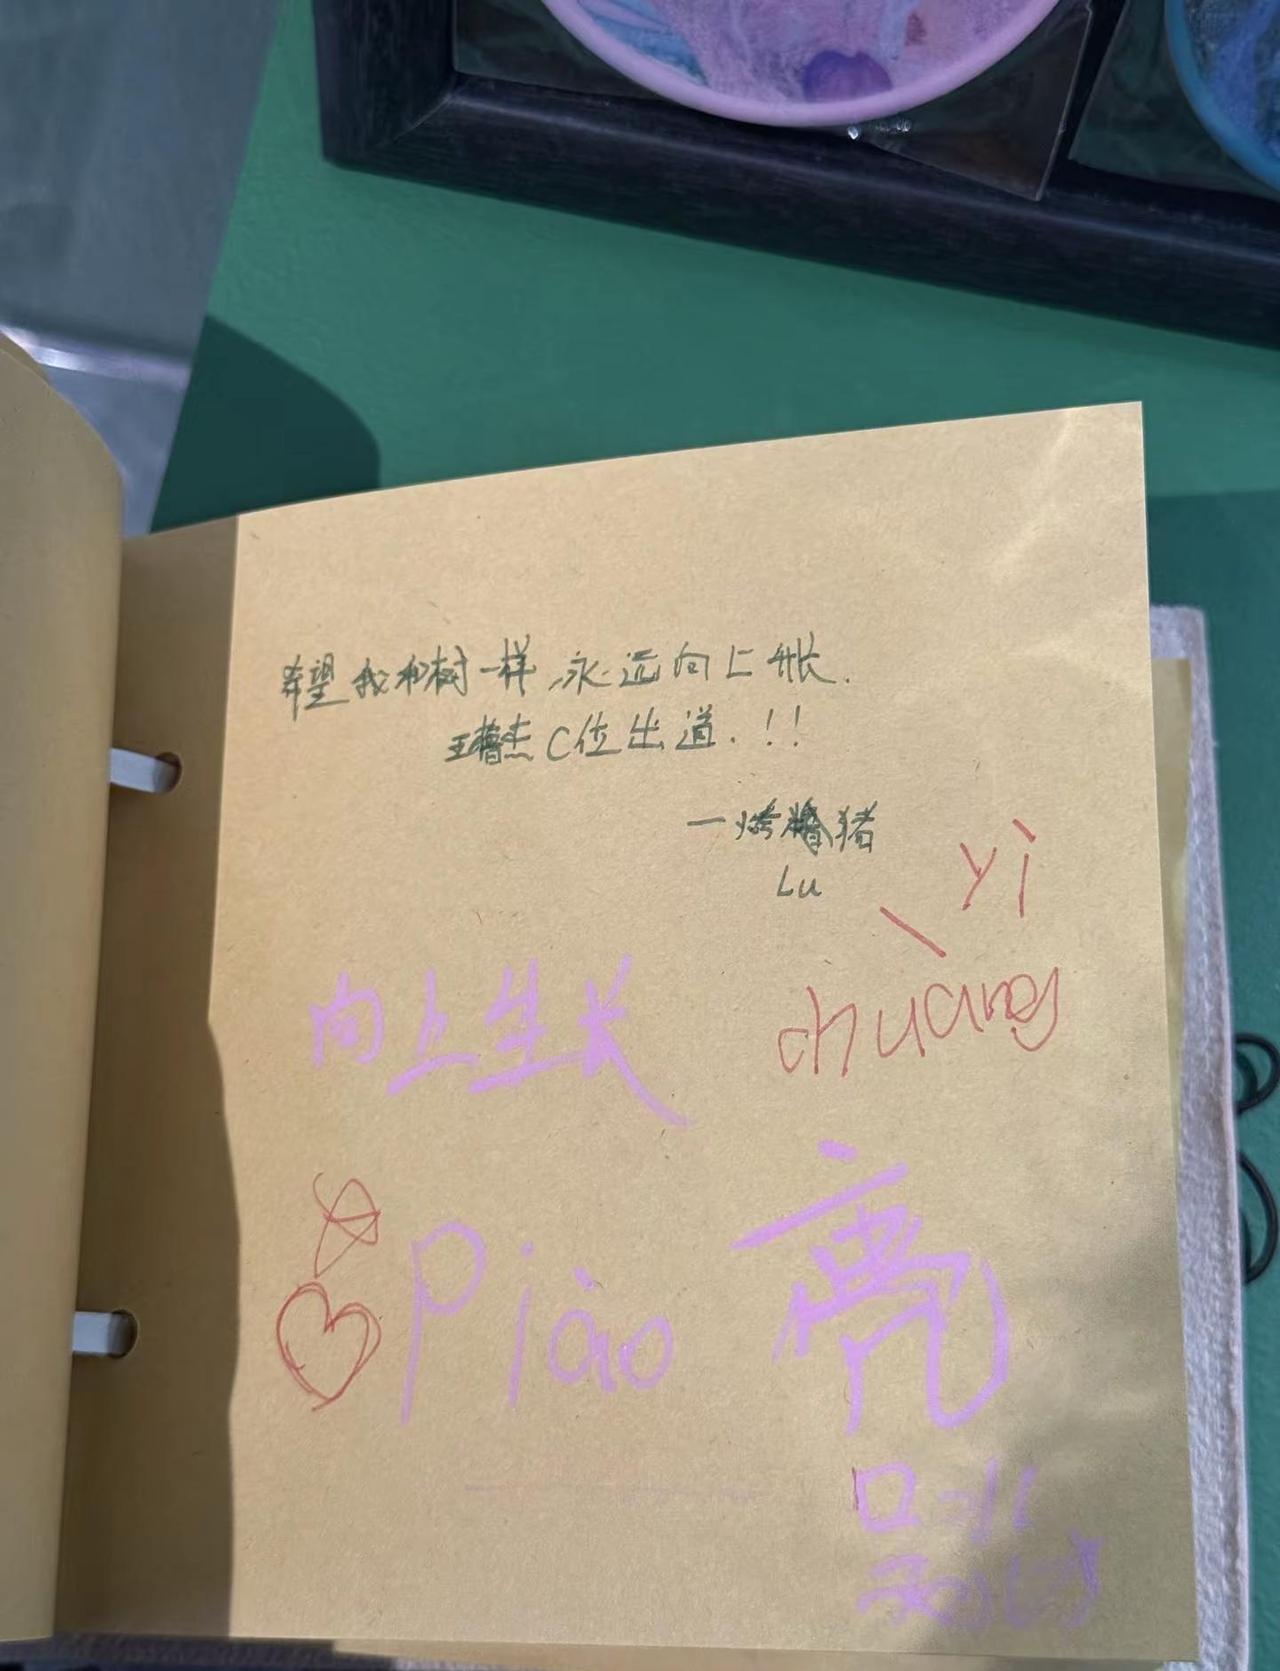 希望我和树一样,永远向上生长.
王 杰C位出道.!!
一烤 猪
Lu
yi
chuang
向上生长
Piào
亮